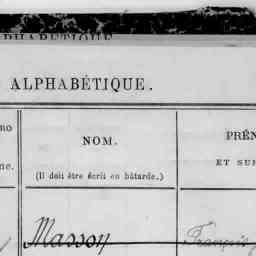 ALPHABÉTIQUE.
no
NOM.
PRÉN
ne.
(Il doit être écrit en bâtarde.)
ET SUR
Masson
François